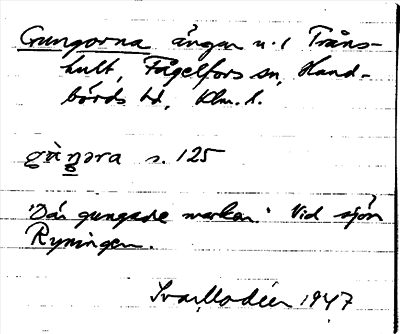 Gungorna ängar u. / Tråns-
hult, Fågelfors sn, Hand-
börds hd, Klm. l.
gùŋɘra s. 125
"Där gungade marken" Vid sjön
Ryningen.
Ivar Modéer 1947